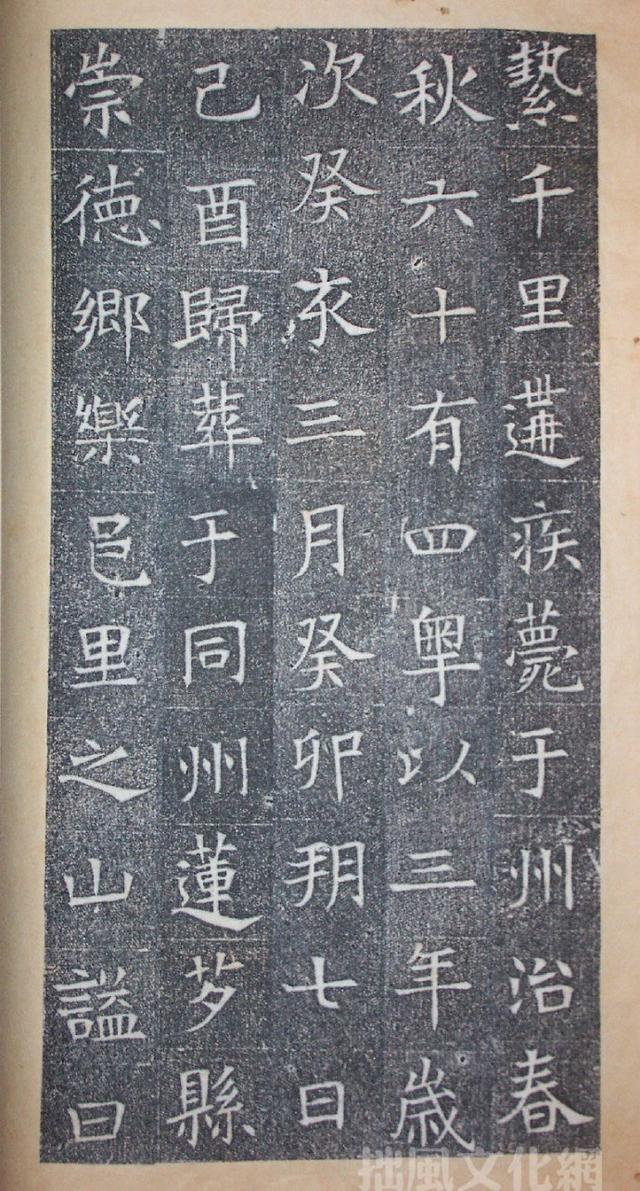 縶千里遘疾薨于州治春
秋六十有四粤以三年歲
次癸亥三月癸卯朔七日
己酉歸葬于同州蓮芍縣
崇徳鄉樂邑里之山謚曰
拙風文化網